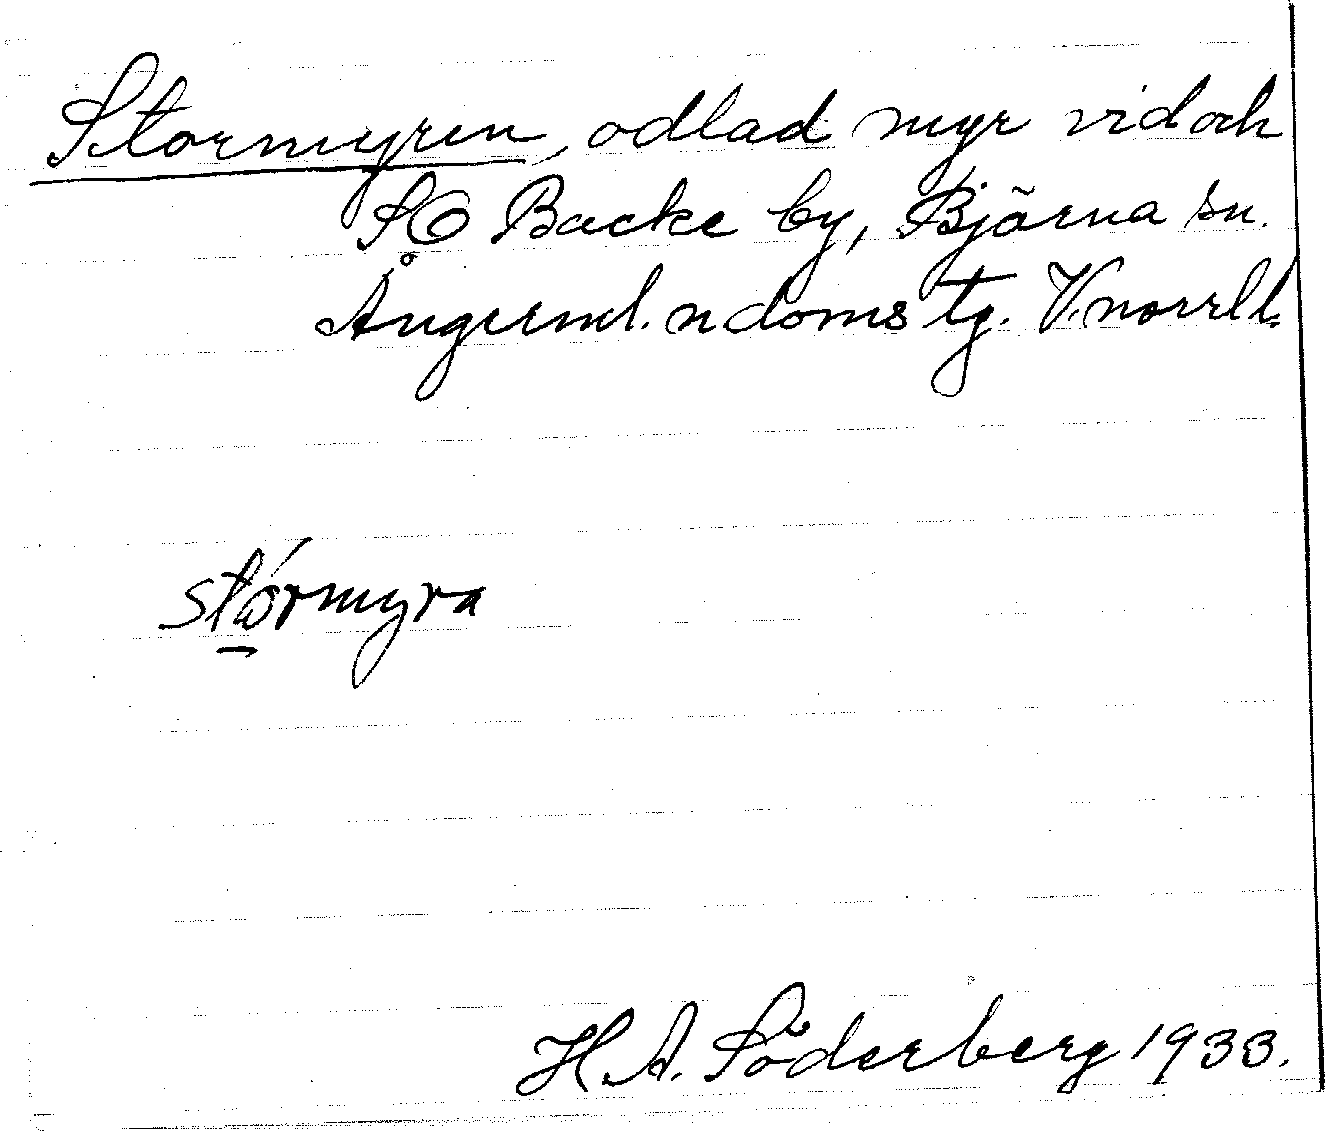 Stormyren, odlad myr vid och
SO Backe by, Björna sn.
Ångerml. n doms tg. V.norrl l.
stórmyra
H. A. Söderberg 1933.